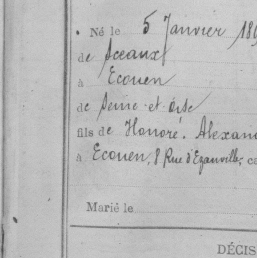 Né le 5 Janvier 189
de Sceaux
à Ecouen
de Seine et Oise
fils de Honoré. Alexan
à Ecouen, 8 Rue d'Ezanville, c
Marié le
DÉCIS